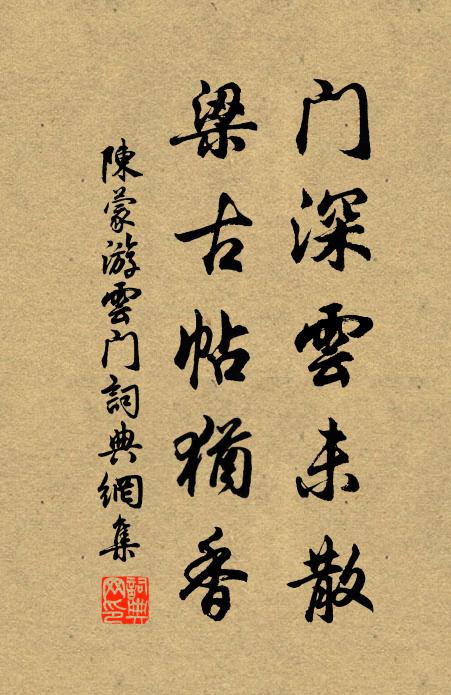 门深雲未散
梁古帖猶香
陳蒙游雲门詞典網集
詞典网印